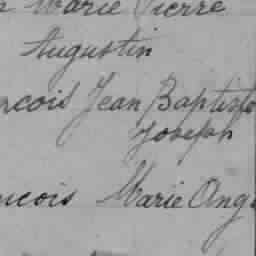 Marie Pierre
Augustin
ncois Jean Baptiste
Joseph
ncois Marie Ang